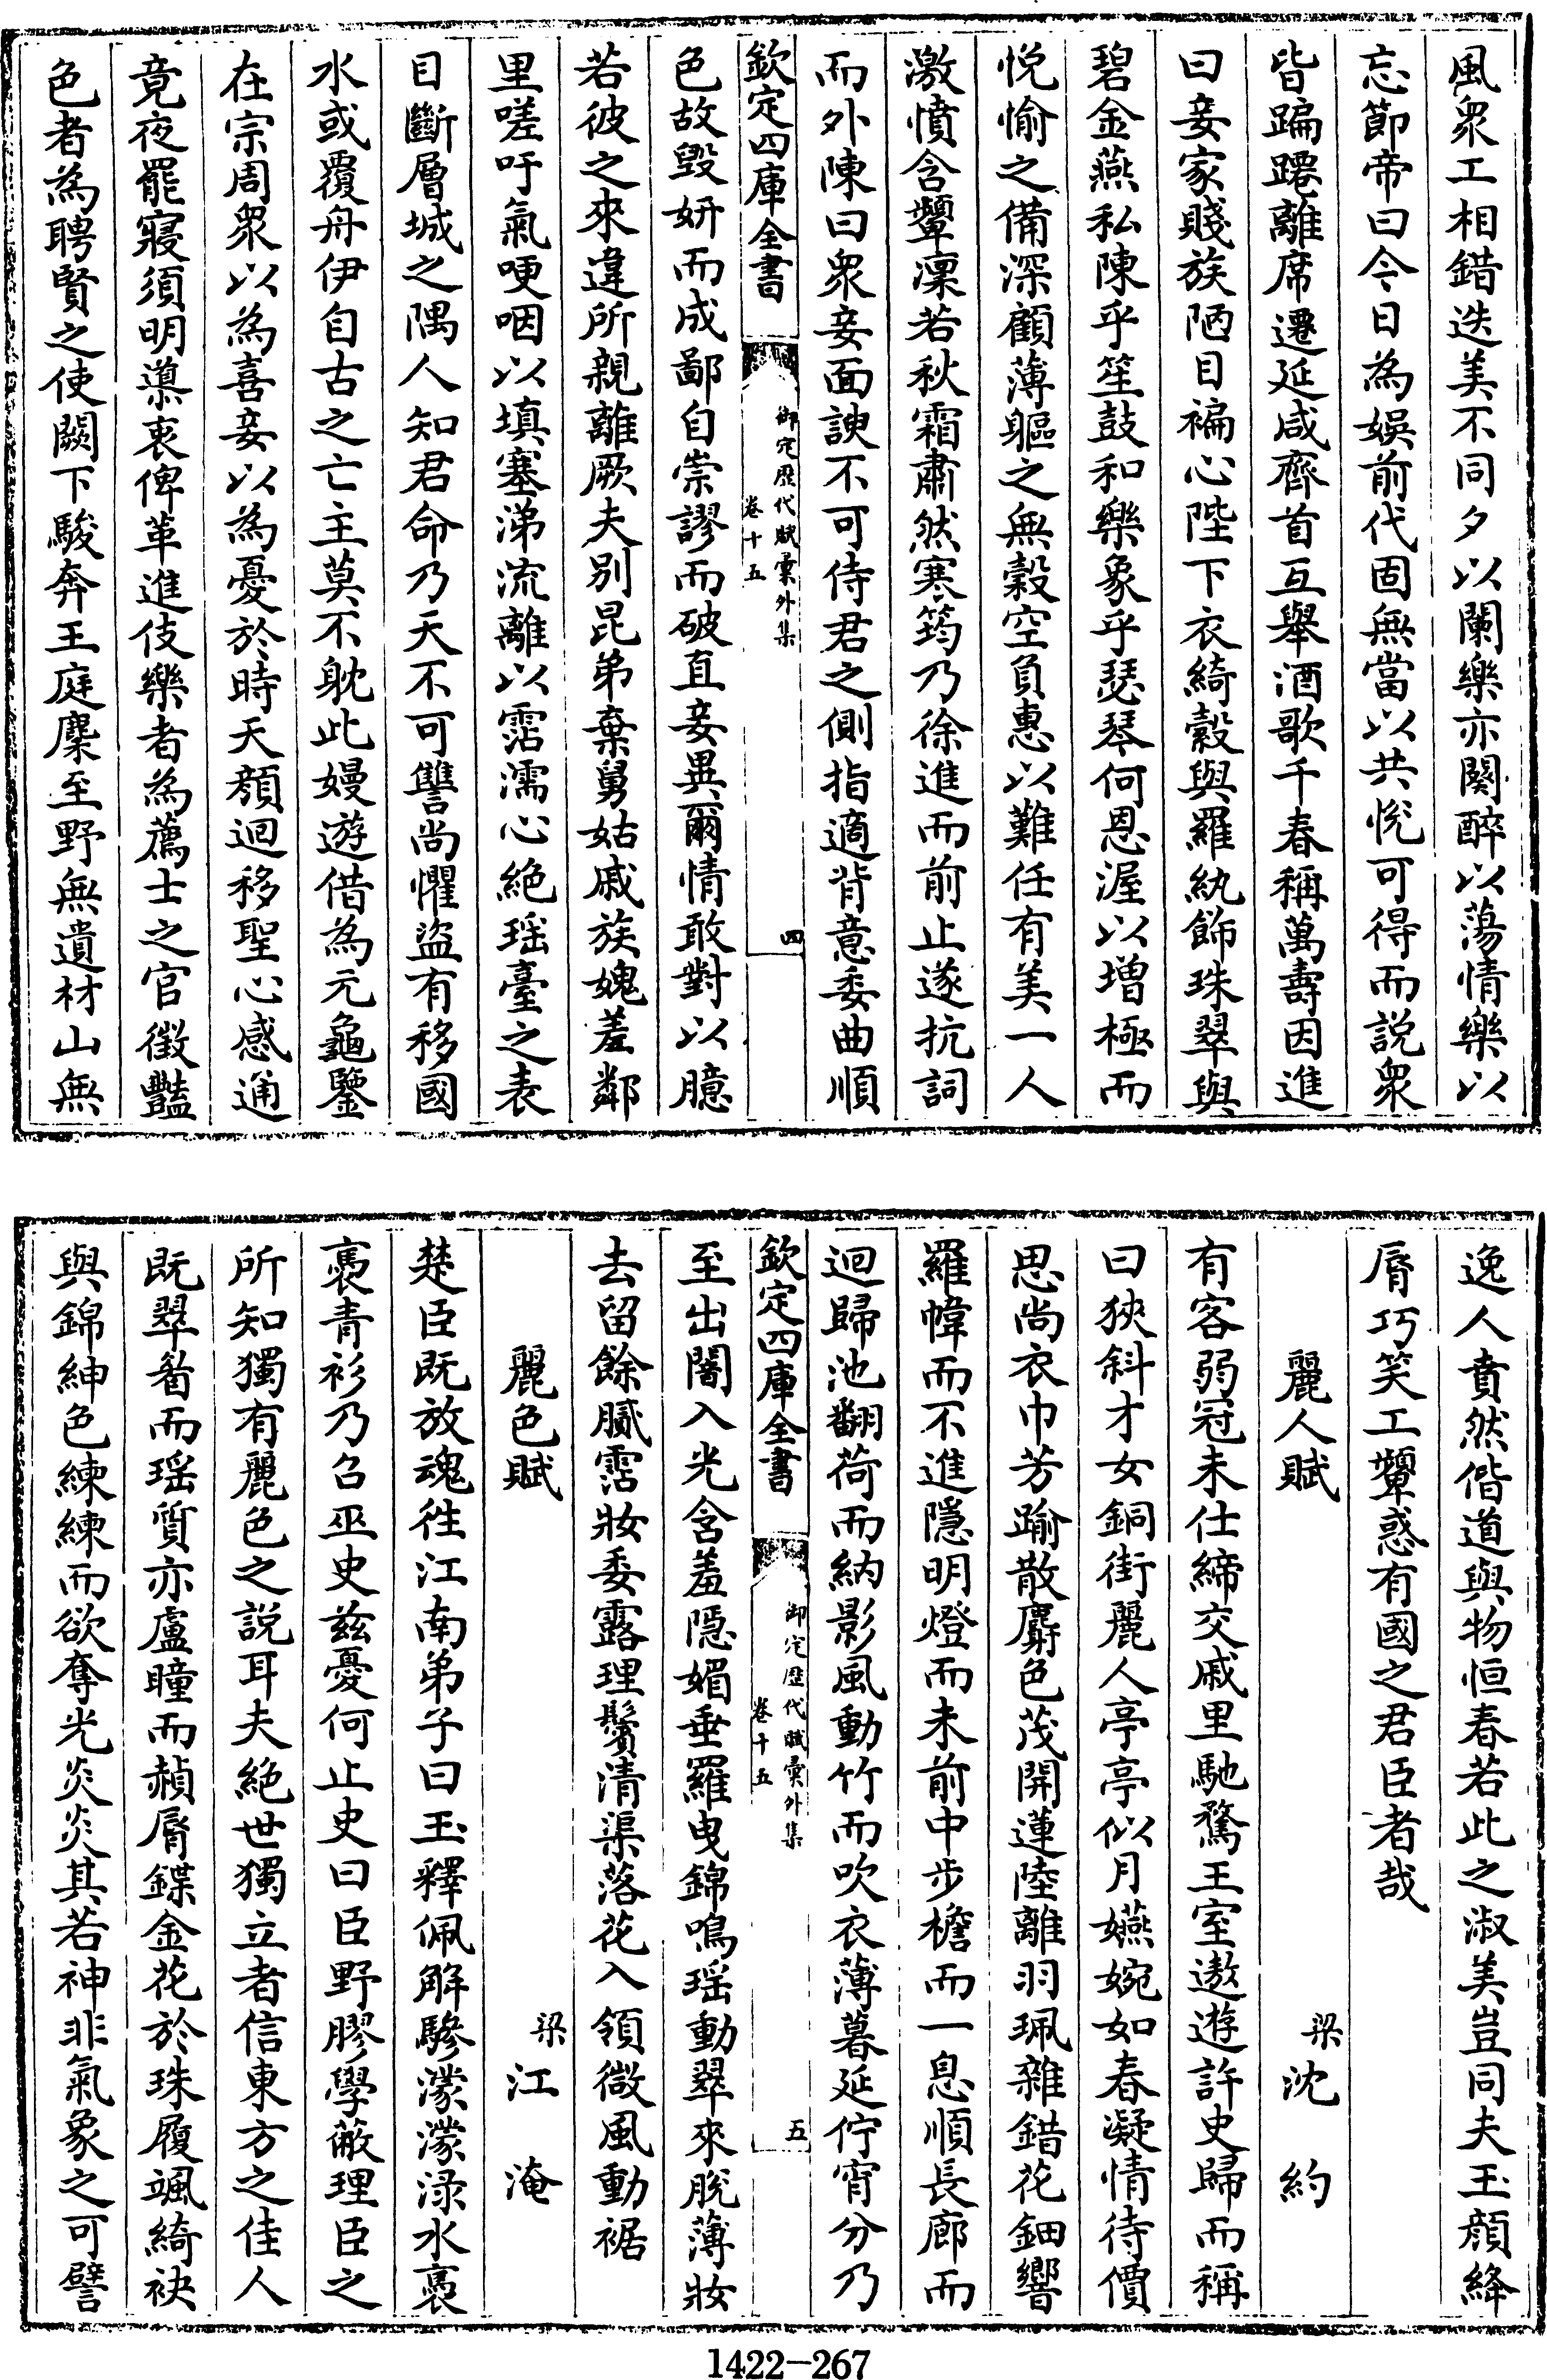 風衆工相錯迭美不同夕以闌樂亦闋醉以蕩情樂以
忘節帝曰今日為娛前代固無當以共悦可得而説衆
皆蹁躚離席遷延咸齊首互舉酒歌千春稱萬壽因進
曰妾家賤族陋目褊心陛下衣綺縠與羅紈飾珠翠與
碧金燕私陳乎笙鼓和樂象乎瑟琴何恩渥以增極而
悦愉之備深顧薄軀之無穀空負惠以難任有美一人
激憤含顰凜若秋霜肅然寒筠乃徐進而前止遂抗詞
而外陳曰衆妾面諛不可侍君之側指適背意委曲順
欽定四庫全書
御定歷代賦彙外集
卷十五
四
色故毀妍而成鄙自崇謬而破直妾異爾情敢對以臆
若彼之來違所親離厥夫别昆弟棄舅姑戚族媿羞鄰
里嗟吁氣哽咽以填塞涕流離以霑濡心絶瑶臺之表
目斷層城之隅人知君命乃天不可讐尚懼盜有移國
水或覆舟伊自古之亡主莫不躭此嫚遊借為元龜鑒
在宗周衆以為喜妾以為憂於時天顔迴移聖心感通
竟夜罷寢須明導衷俾革進伎樂者為薦士之官徴豔
色者為聘賢之使闕下駿奔王庭麇至野無遺材山無
逸人賁然偕道與物恒春若此之淑美豈同夫玉顔絳
脣巧笑工顰惑有國之君臣者哉
麗人賦
梁沈約
有客弱冠未仕締交戚里馳騖王室遨遊許史歸而稱
曰狹斜才女銅街麗人亭亭似月嬿婉如春凝情待價
思尚衣巾芳踰散麝色茂開蓮陸離羽珮雜錯花鈿響
羅幃而不進隱明燈而未前中步檐而一息順長廊而
迴歸池翻荷而納影風動竹而吹衣薄暮延佇宵分乃
欽定四庫全書
御定歷代賦彙外集
卷十五
五
至出闇入光含羞隱媚垂羅曳錦鳴瑶動翠來脱薄妝
去留餘膩霑妝委露理鬢清渠落花入領微風動裾
麗色賦
梁江淹
楚臣既放魂徃江南弟子曰玉釋佩解驂濛濛渌水裹
裹青衫乃召巫史兹憂何止史曰臣野膠學蔽理臣之
所知獨有麗色之説耳夫絶世獨立者信東方之佳人
既翠眉而瑶質亦盧瞳而赬脣鏷金花於珠履颯綺袂
與錦紳色練練而欲奪光炎炎其若神非氣象之可譬
1422-267